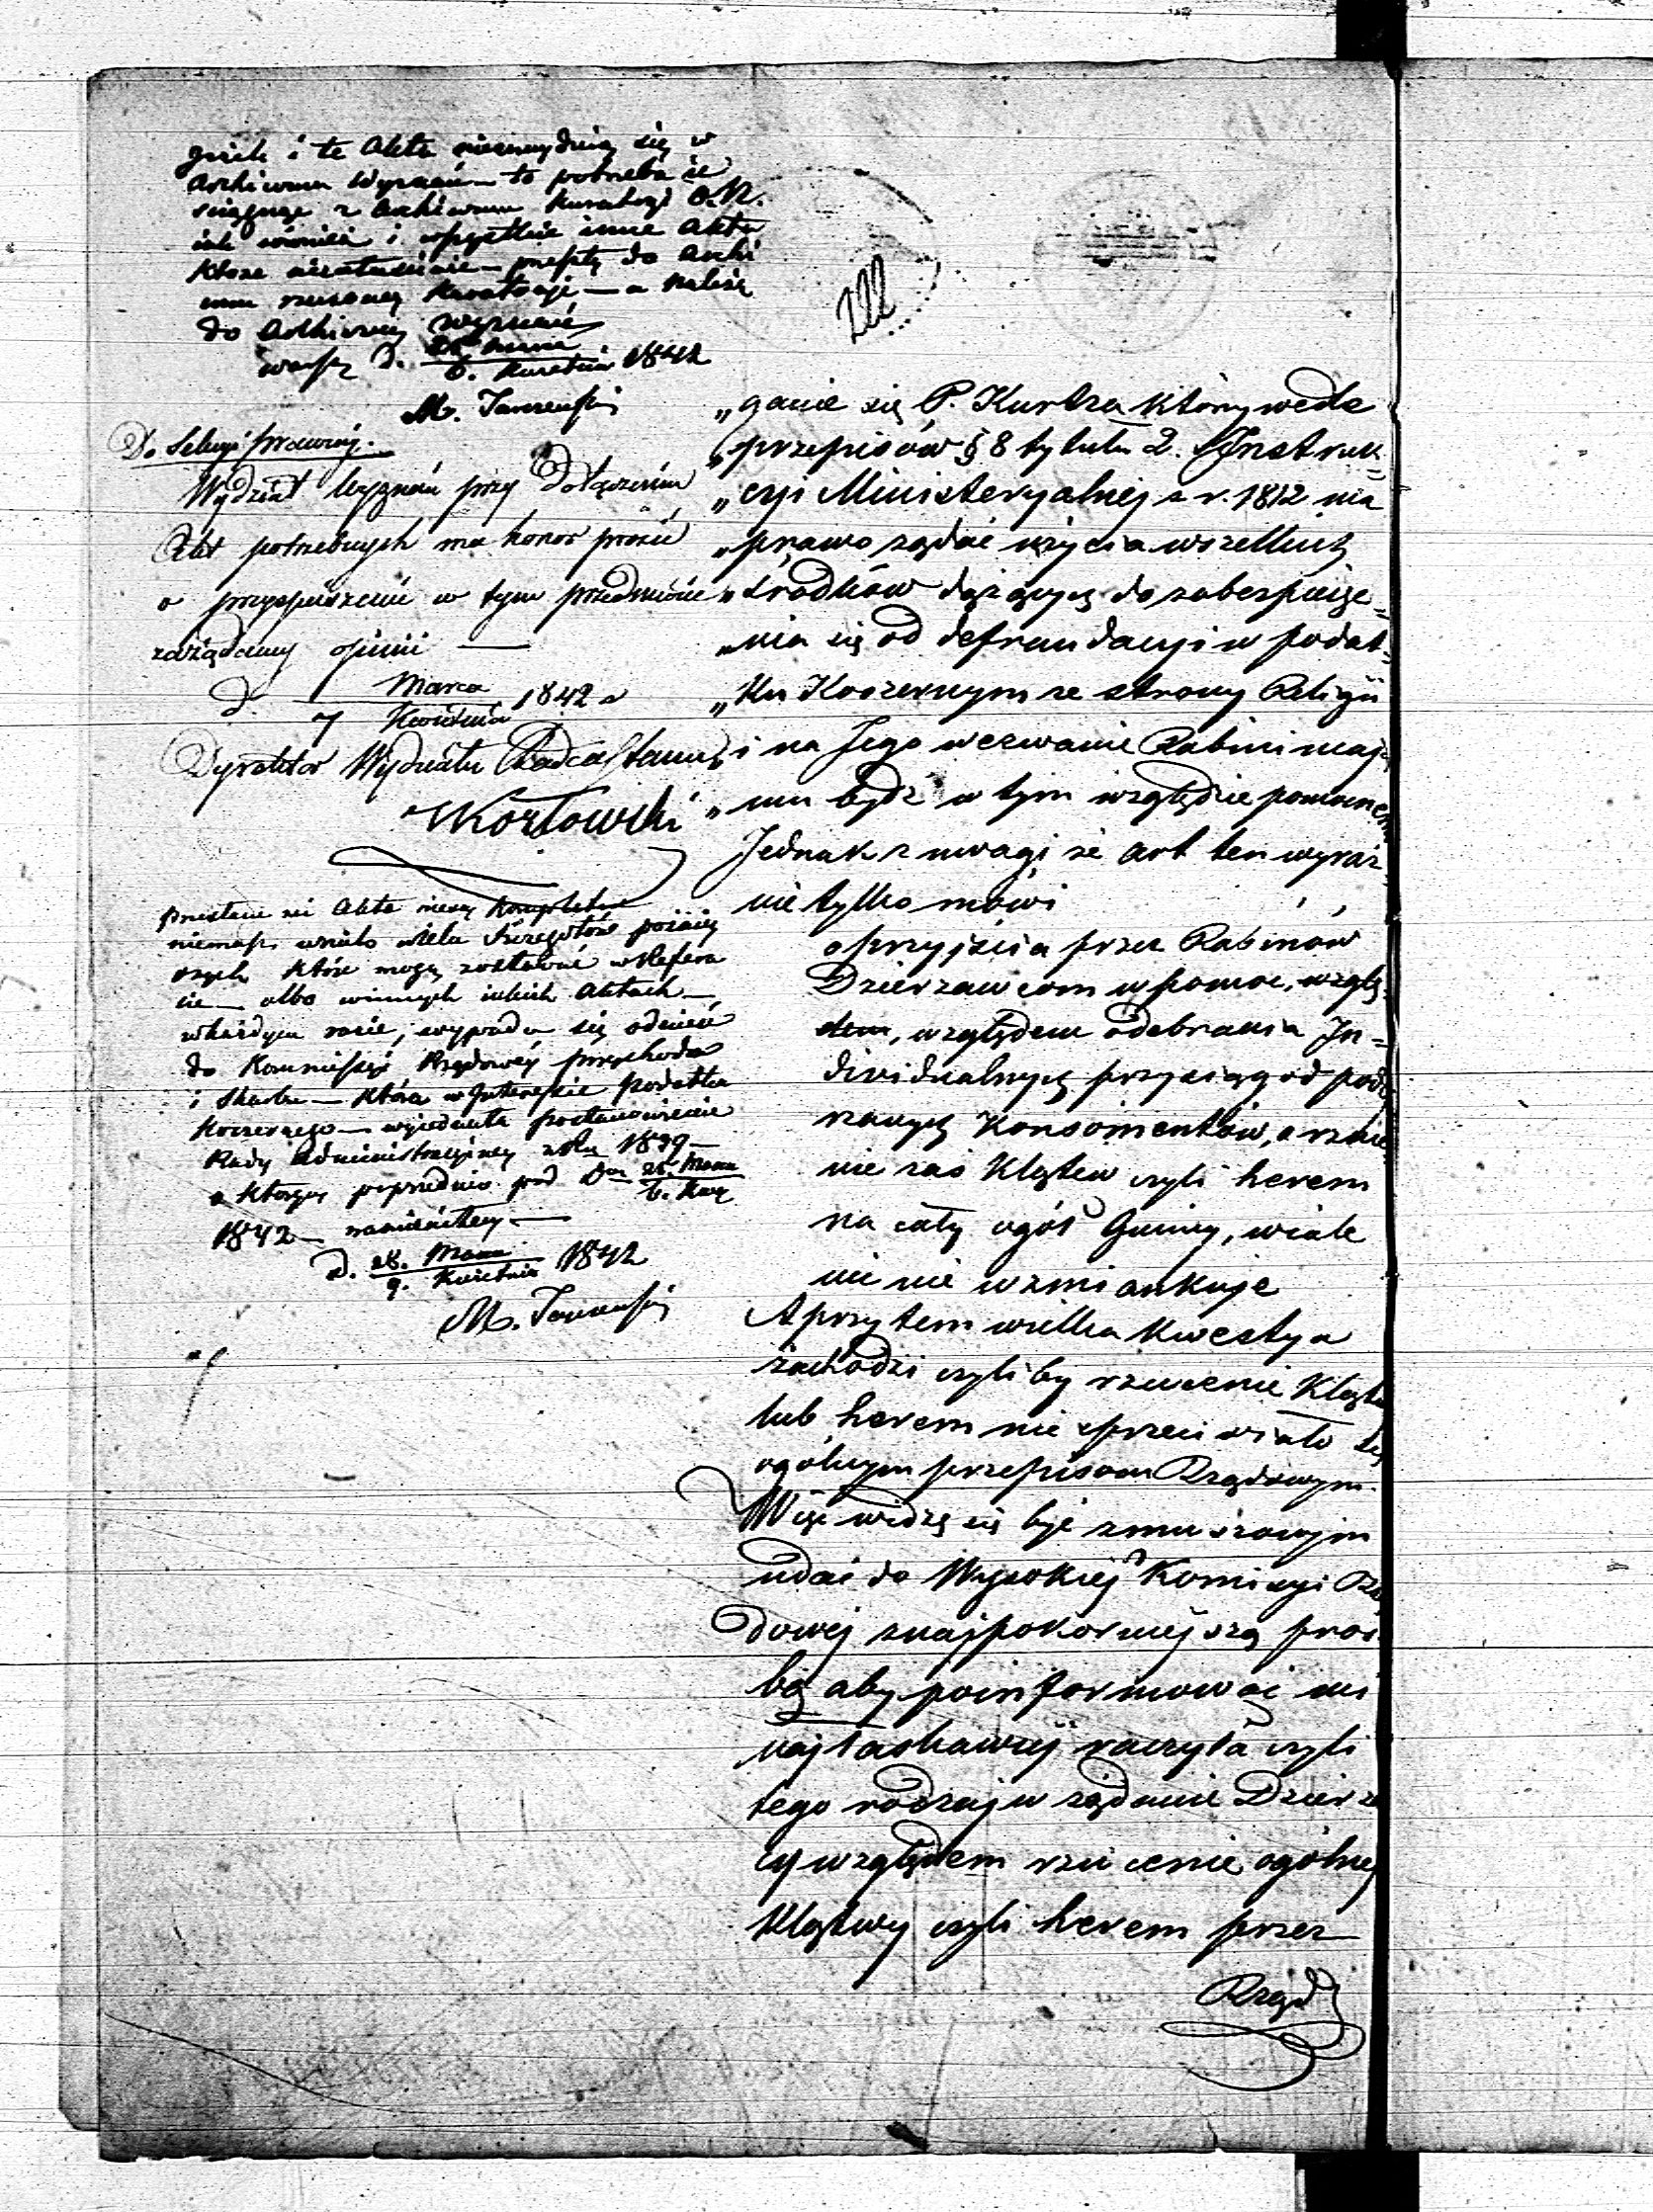 jeżeli i te Akta nieznajdują się w
Archiwum Wyznań to potrzeba je
ściągnąć z Archiwum Kuratoryi
jak również i wszystkie inne Akta
które niesłusznie przeszły do Archi
wum rzeczonej Kuratoryi — a należą
do Archiwum Wyznań
Warsz. d. 25 Marca / 6. Kwietnia 1842
M.
222
Do Sekcyi prawnej.
Wydział Wyznań przy dołączeniu
Akt potrzebnych ma honor prosić
o przyspieszenie w tym przedmiocie
zażądanej opinii —
d. Marca / 7 Kwietnia 1842 r
Dyrektor Wydziału Radca Stanu
Kozłowski
Akta niesą kompletne
niemasz wielu szczegółów później
szych które mogą zostawać w Refera
cie — albo w innych jakich Aktach —
w każdym razie, wypada się odnieść
do Kommissyi Rządowej Przychodów
i Skarbu — która w Interessie podatku
koszernego — wyjednała postanowienie
Rady Administracyjnej z Rku 1839 —
o którym poprzednio pod Dm 25. Marca / 6. Kwie
1842 — namieniłem —
d. 28. Marca / 9. Kwietnia 1842
M.
„ganie się P. Kurtza który wedle
„przepisów § 8 tytułu 2. Instruk=
„cyi Ministeryalnej z r. 1812 ma
„prawo żądać użycia wszelkich
„środków dążących do zabezpiecze=
„nia się od defraudacyi w podat=
„ku Koszernym ze strony Religii
„i na Jego wezwanie Rabini mają
„mu bydź w tym względzie pomocnemi
Jednak z uwagi że art ten wyraź
nie tylko mówi
o przyjścia przez Rabinów
Dzierzawcom w pomoc, wzglę
dem, względem odebrania In=
dividualnych przysiąg od podej
rzanych Konsomentów, a rzuce
nie zaś Klątew czyli herem
na cały ogół Gminy, wcale
mi nie wzmiankuje
A przytem wielka kwestya
zachodzi czyliby rzucenie Klątw
lub herem nie sprzeciwiało się
ogólnym przepisom Rządowym.
Więc widzę się być zmuszonym
udać do Wysokiej Komisyi Rzą
dowej z najpokorniejszą proź
bą aby poinformować mi
najłaskawiej raczyła czyli
tego rodzaju żądanie Dzierza
cy względem rzucenie ogólnej
Klątwy czyli herem przez
Rząd